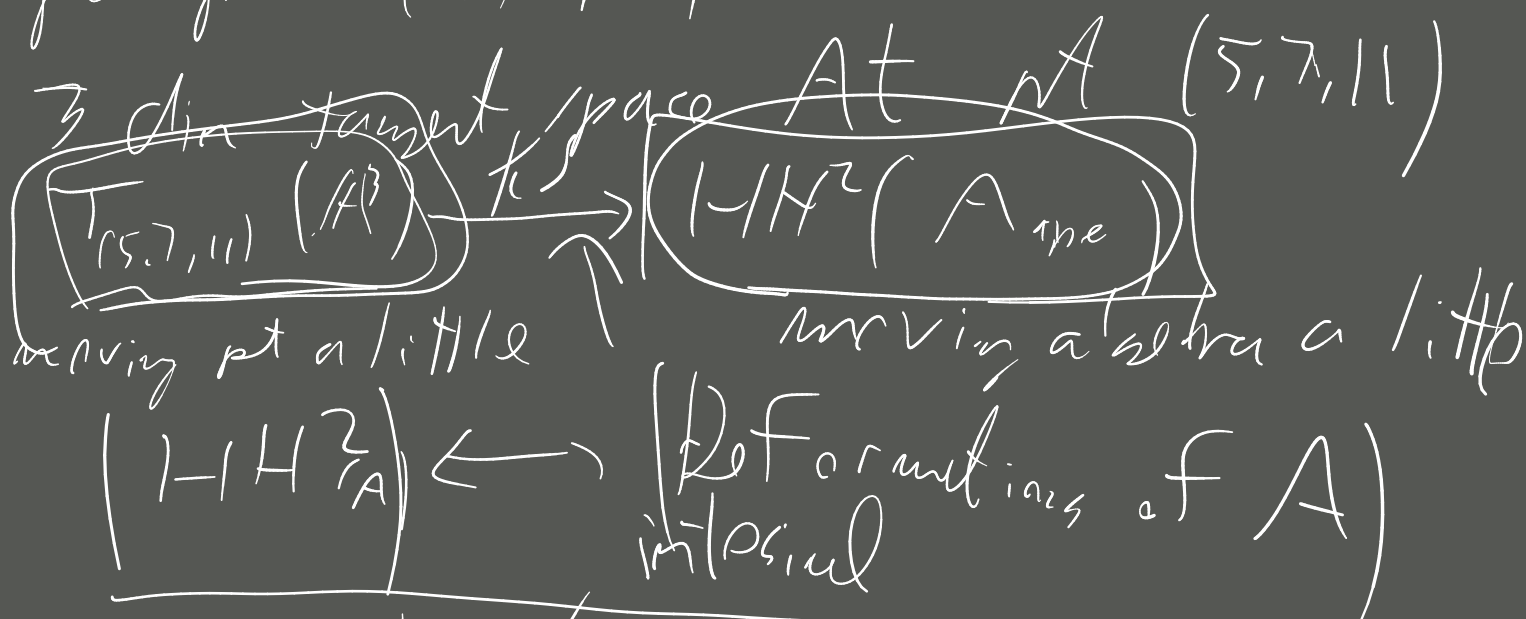 3 dim tangent space At pt (5,7,11)
T(5,7,11) (A³) KS → HH²(A spe)
moving pt a little moving algebra a little
HH²(A) ↔ (Deformations of A)